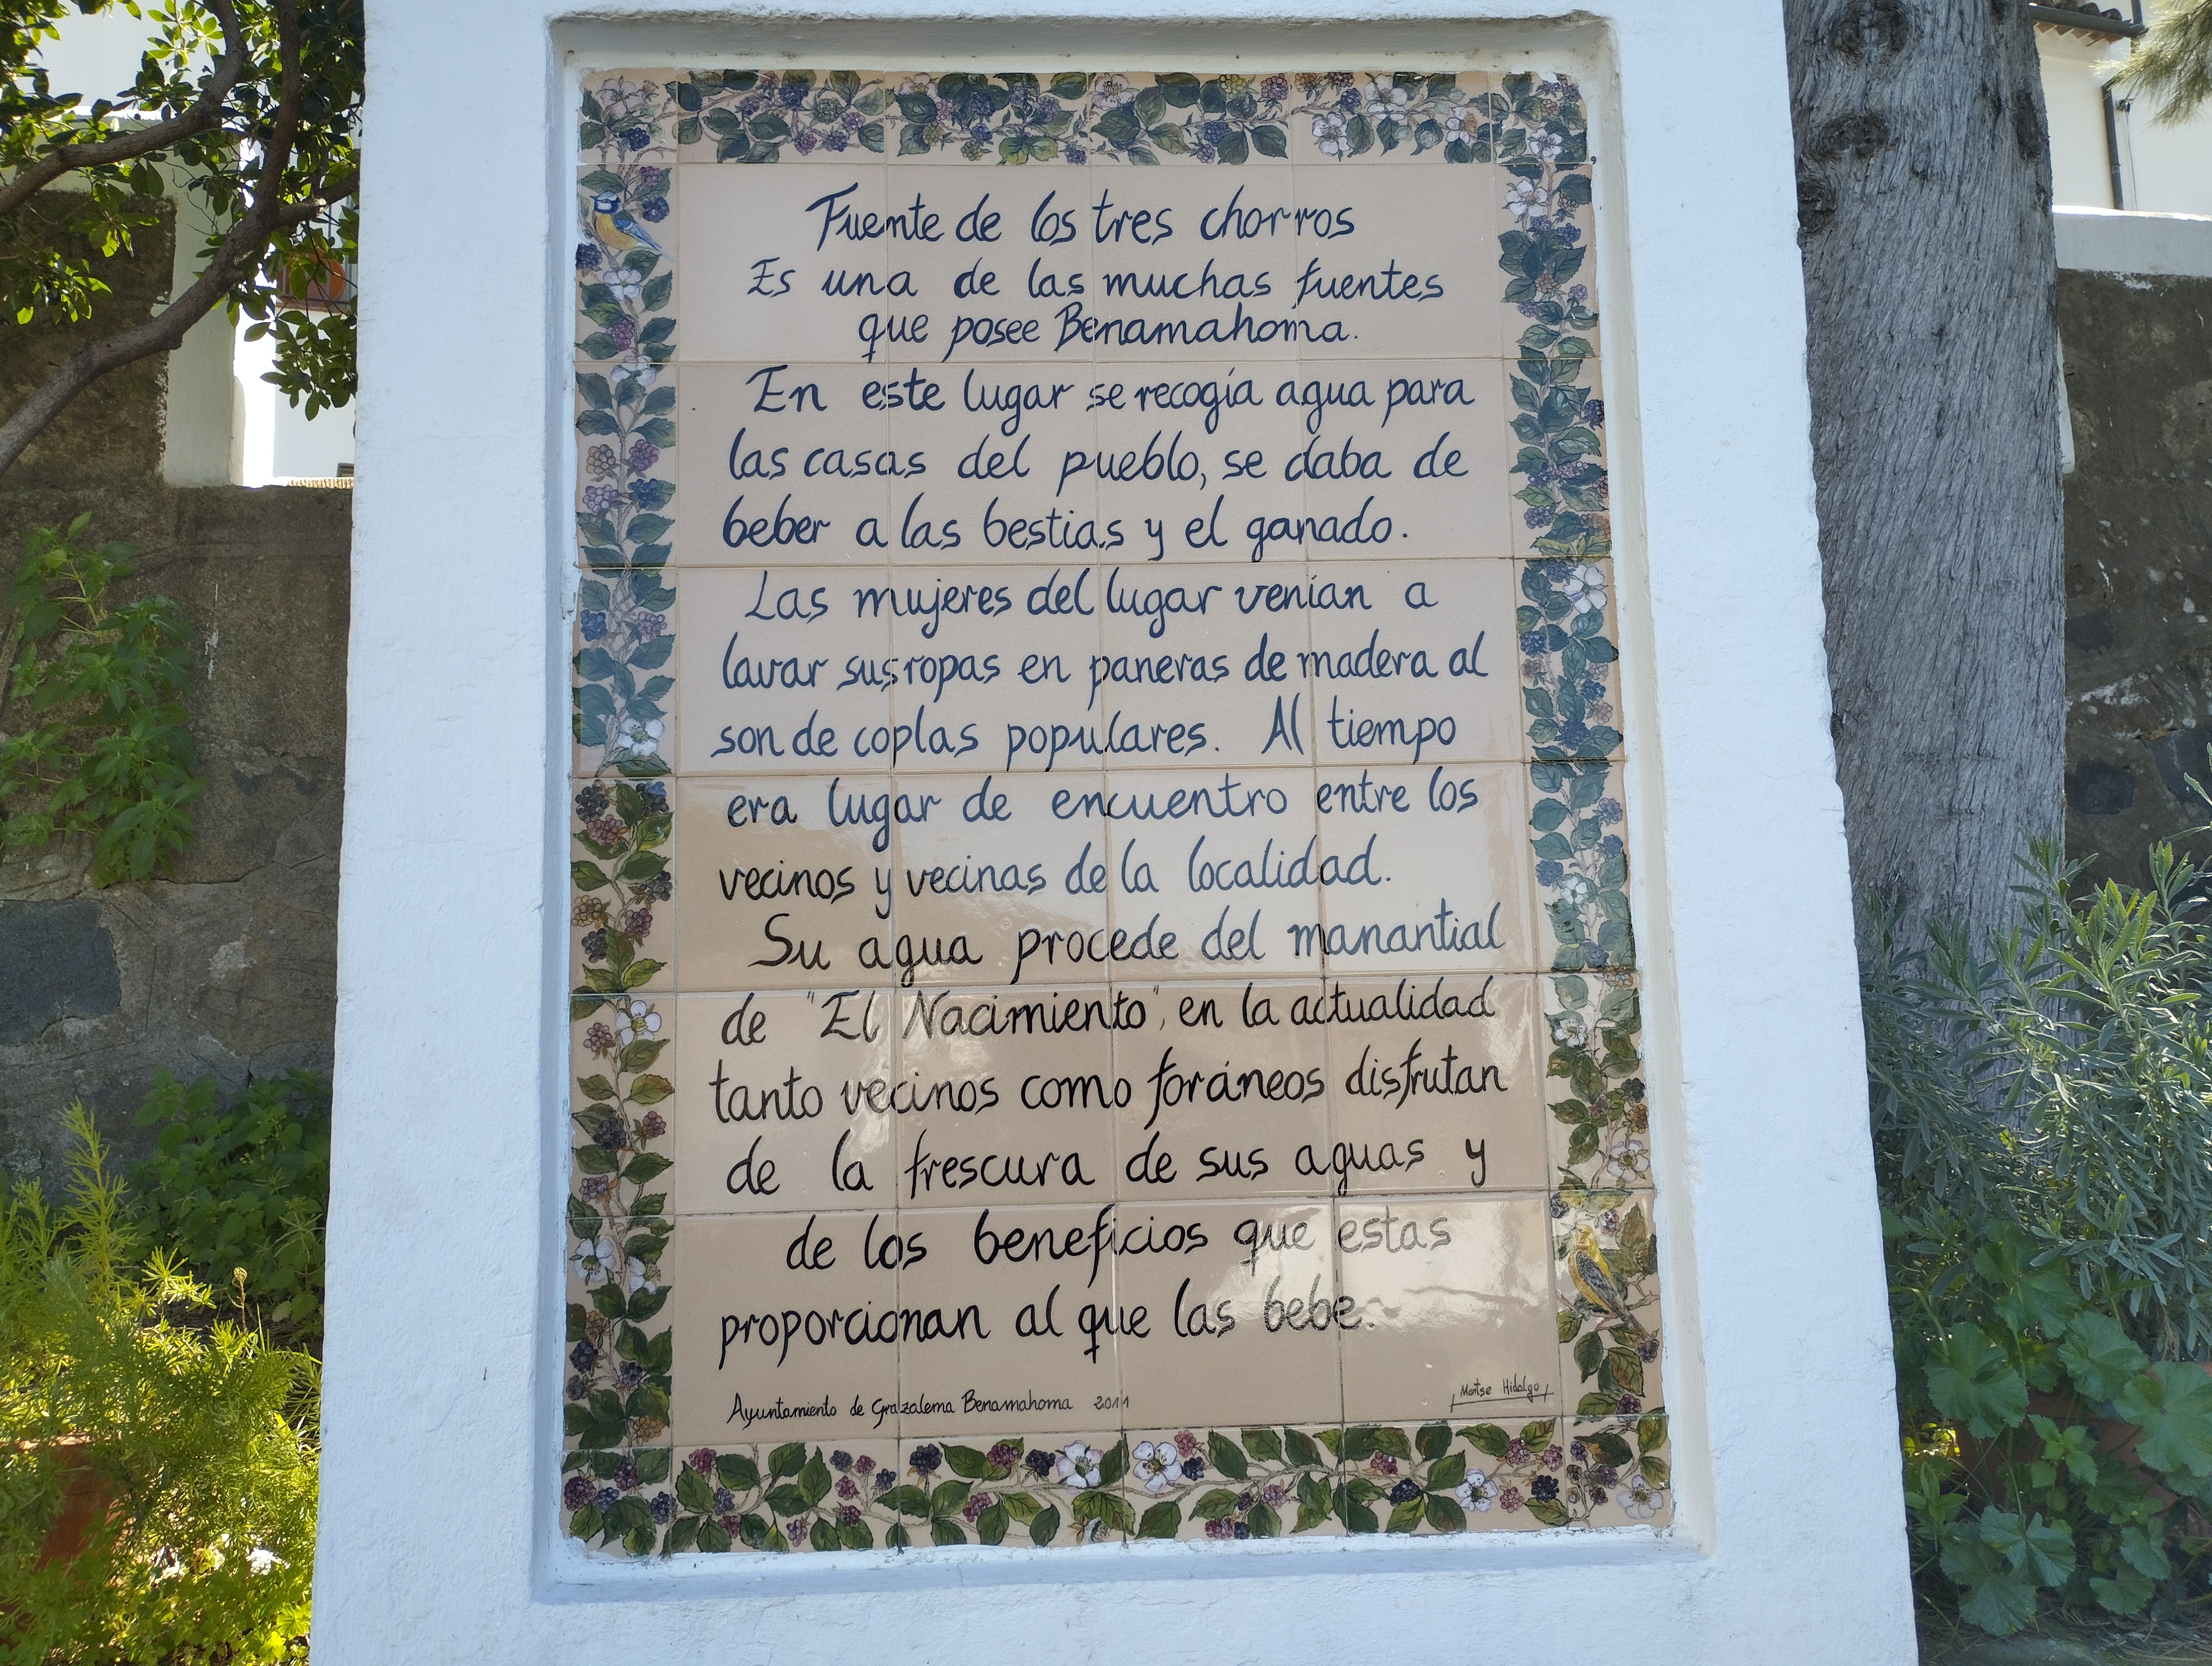 Fuente de los tres chorros
Es una de las muchas fuentes
que posee Benamahoma.
En este lugar se recogía agua para
las casas del pueblo, se daba de
beber a las bestias y el ganado.
Las mujeres del lugar venían a
lavar sus ropas en paneras de madera al
son de coplas populares. Al tiempo
era lugar de encuentro entre los
vecinos y vecinas de la localidad.
Su agua procede del manantial
de "El Nacimiento", en la actualidad
tanto vecinos como foráneos disfrutan
de la frescura de sus aguas y
de los beneficios que estas
proporcionan al que las bebe.
Ayuntamiento de Grazalema Benamahoma 2011
Montse Hidalgo